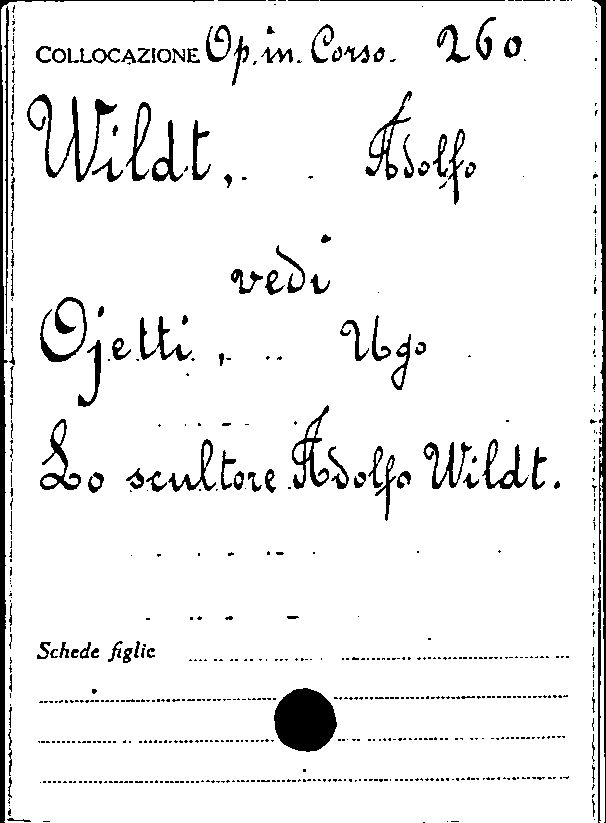 COLLOCAZIONE Op. in. Corso. 260
Wildt, Adolfo
vedi
Ojetti, Ugo
Lo scultore Adolfo Wildt.
Schede figlie